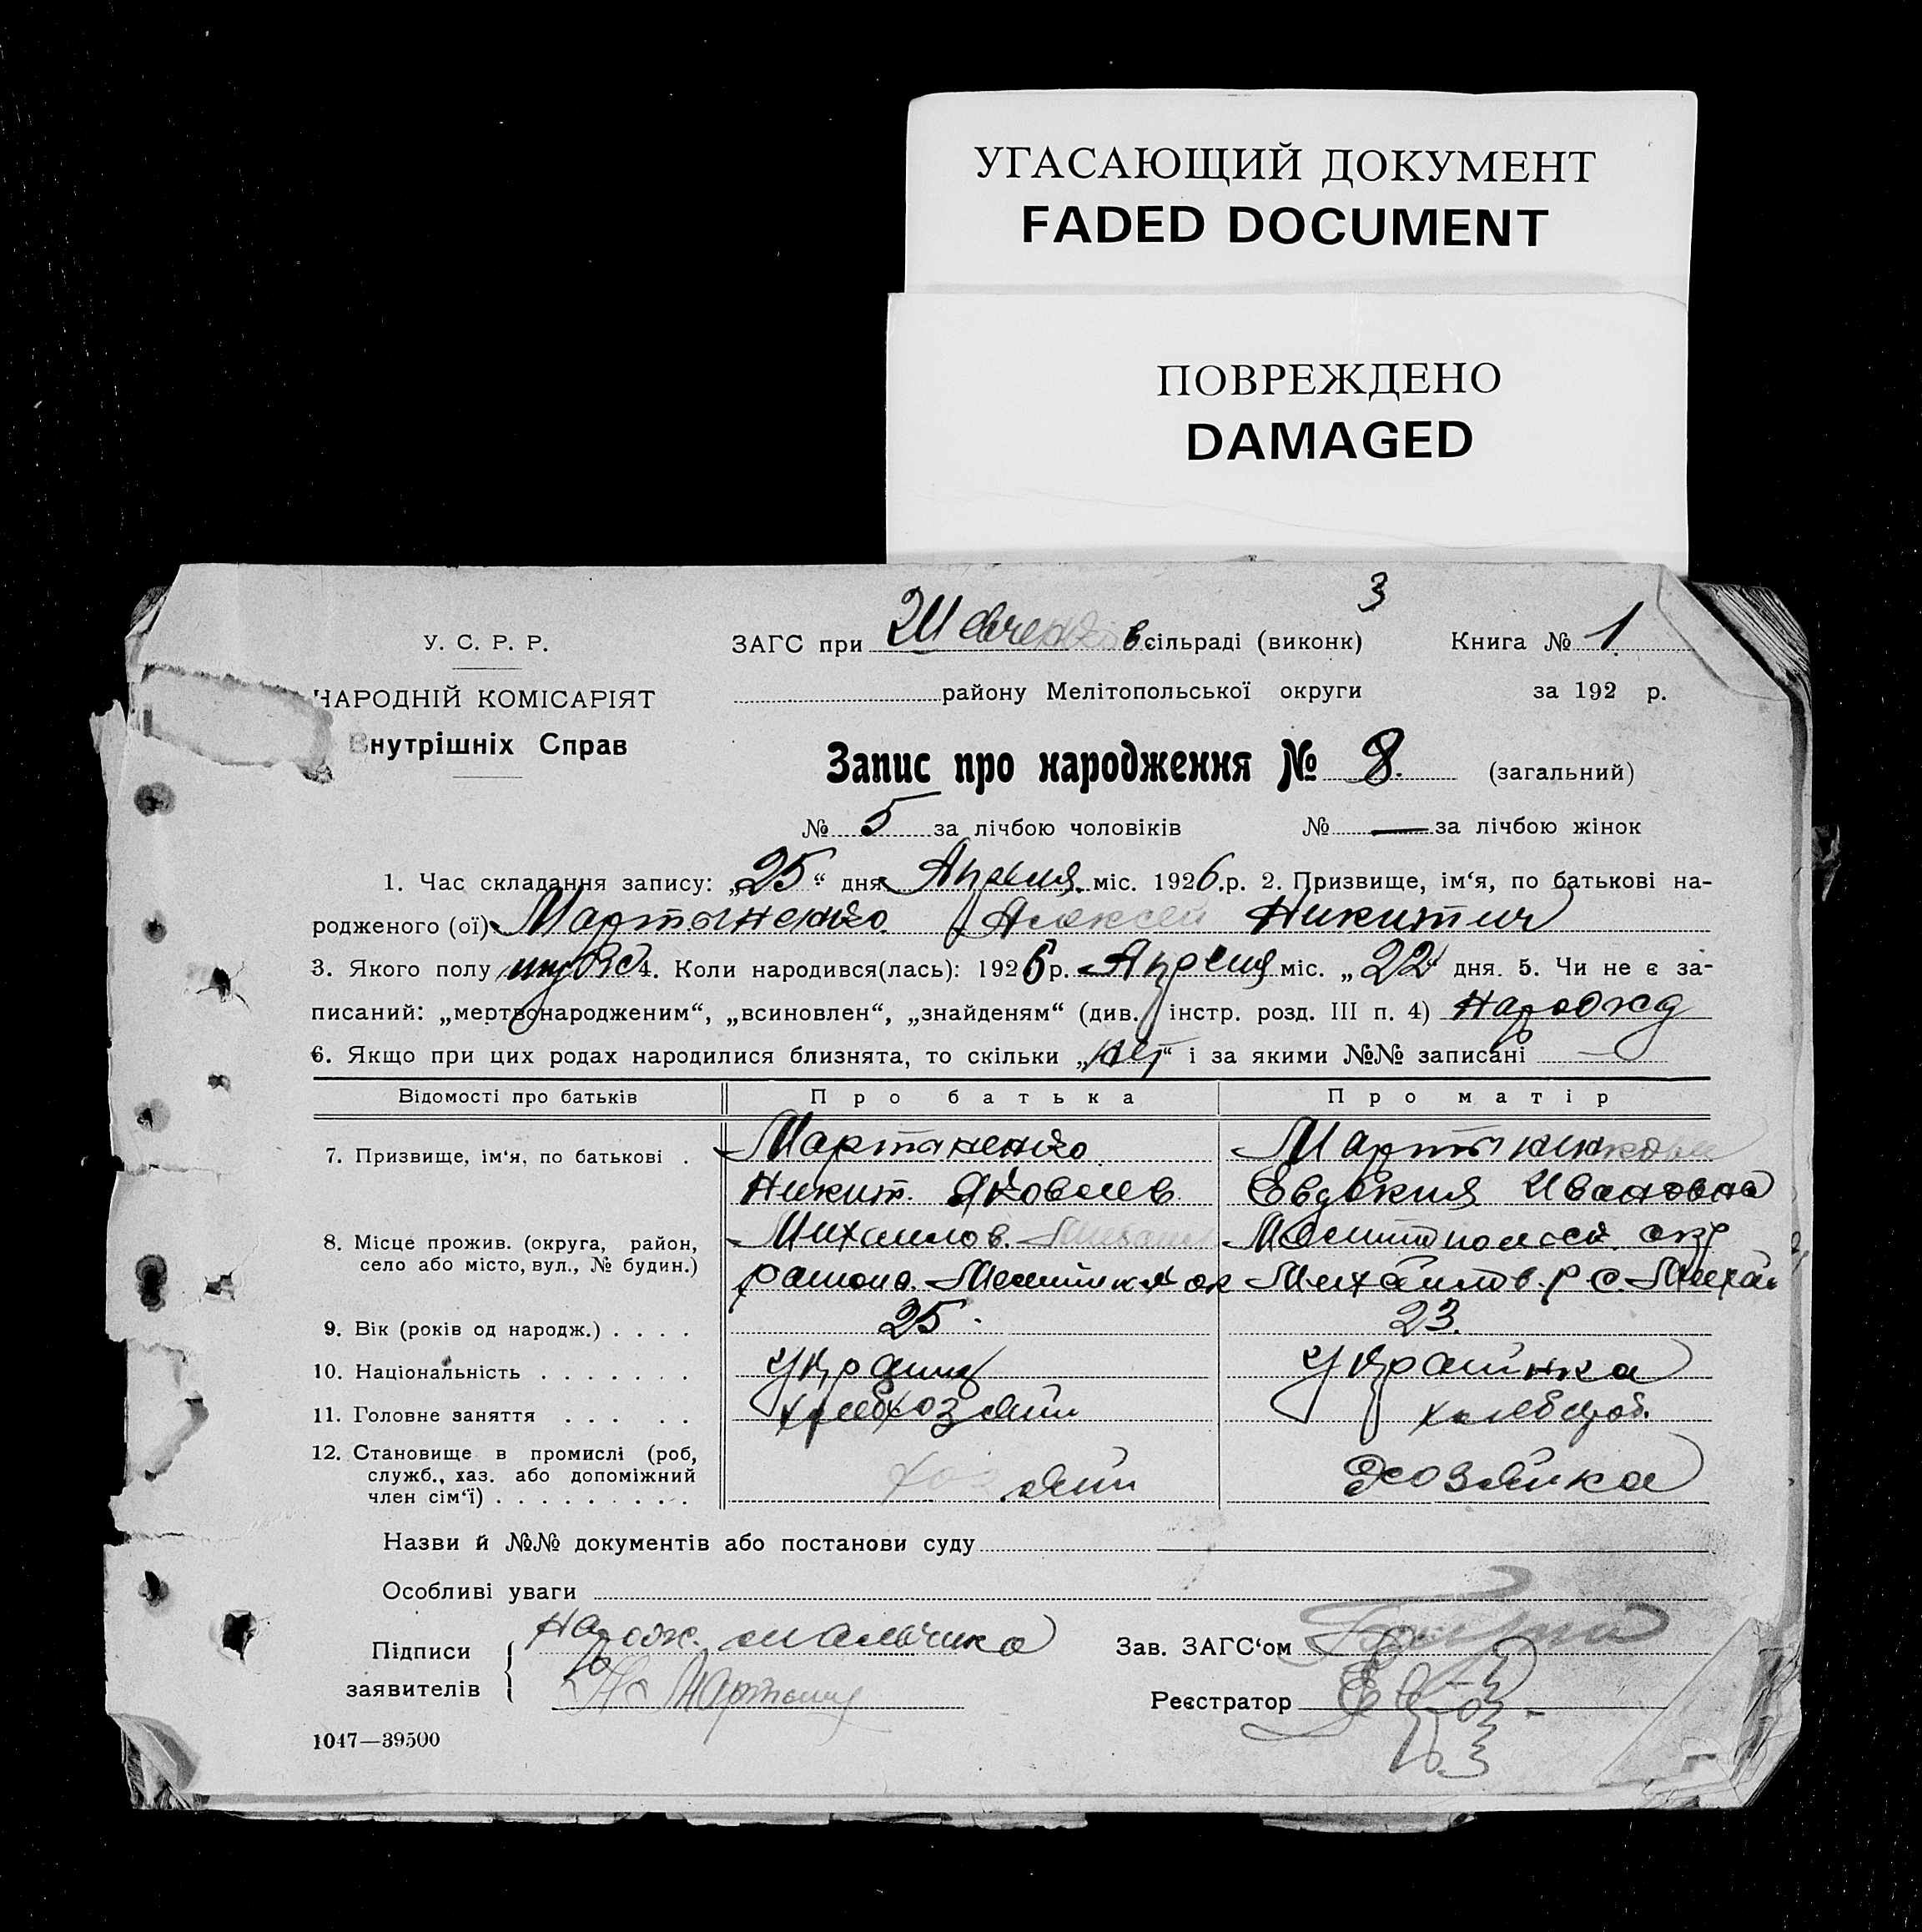 УГАСАЮЩИЙ ДОКУМЕНТ
FADED DOCUMENT
ПОВРЕЖДЕНО
DAMAGED
3
У. С. Р. Р.
ЗАГС при сільраді (виконк)
Книга № 1.
НАРОДНІЙ КОМІСАРІЯТ
району Мелітопольської округи
за 192 р.
Внутрішніх Справ
Запис про народження № 8. (загальний)
№ 5 за лічбою чоловіків № — за лічбою жінок
1. Час складання запису: „25“ дня Апреля міс. 1926.р. 2. Призвище, ім‘я, по батькові на-
родженого (ої) Мартыненко Алексей Никитич
3. Якого полу 4. Коли народився(лась): 1926 р. Апреля міс. „22 дня. 5. Чи не є за-
писаний: „мертвонародженим“, „всиновлен“, „знайденям“ (див. інстр. розд. III п. 4) Нарожд
6. Якщо при цих родах народилися близнята, то скільки „нет“ і за якими №№ записані —
Відомості про батьків Про батька Про матір
7. Призвище, ім‘я, по батькові . Мартыненко
Никит. Яковлев. Евдокия Ивановна
8. Місце прожив. (округа, район, Михаилов.
село або місто, вул., № будин.) района. Михайлов. р с.
9. Вік (років од народж.) . . . . 25. 23.
10. Національність . . . . . . . Украинка
11. Головне заняття . . . . .
12. Становище в промислі (роб,
служб., хаз. або допоміжний
член сім‘ї) . . . . . . . . . Хозяин Хозяйка
Назви й №№ документів або постанови суду
Особливі уваги
Підписи Нарож. мальчика Зав. ЗАГС‘ом
заявителів Реєстратор
1047—39500